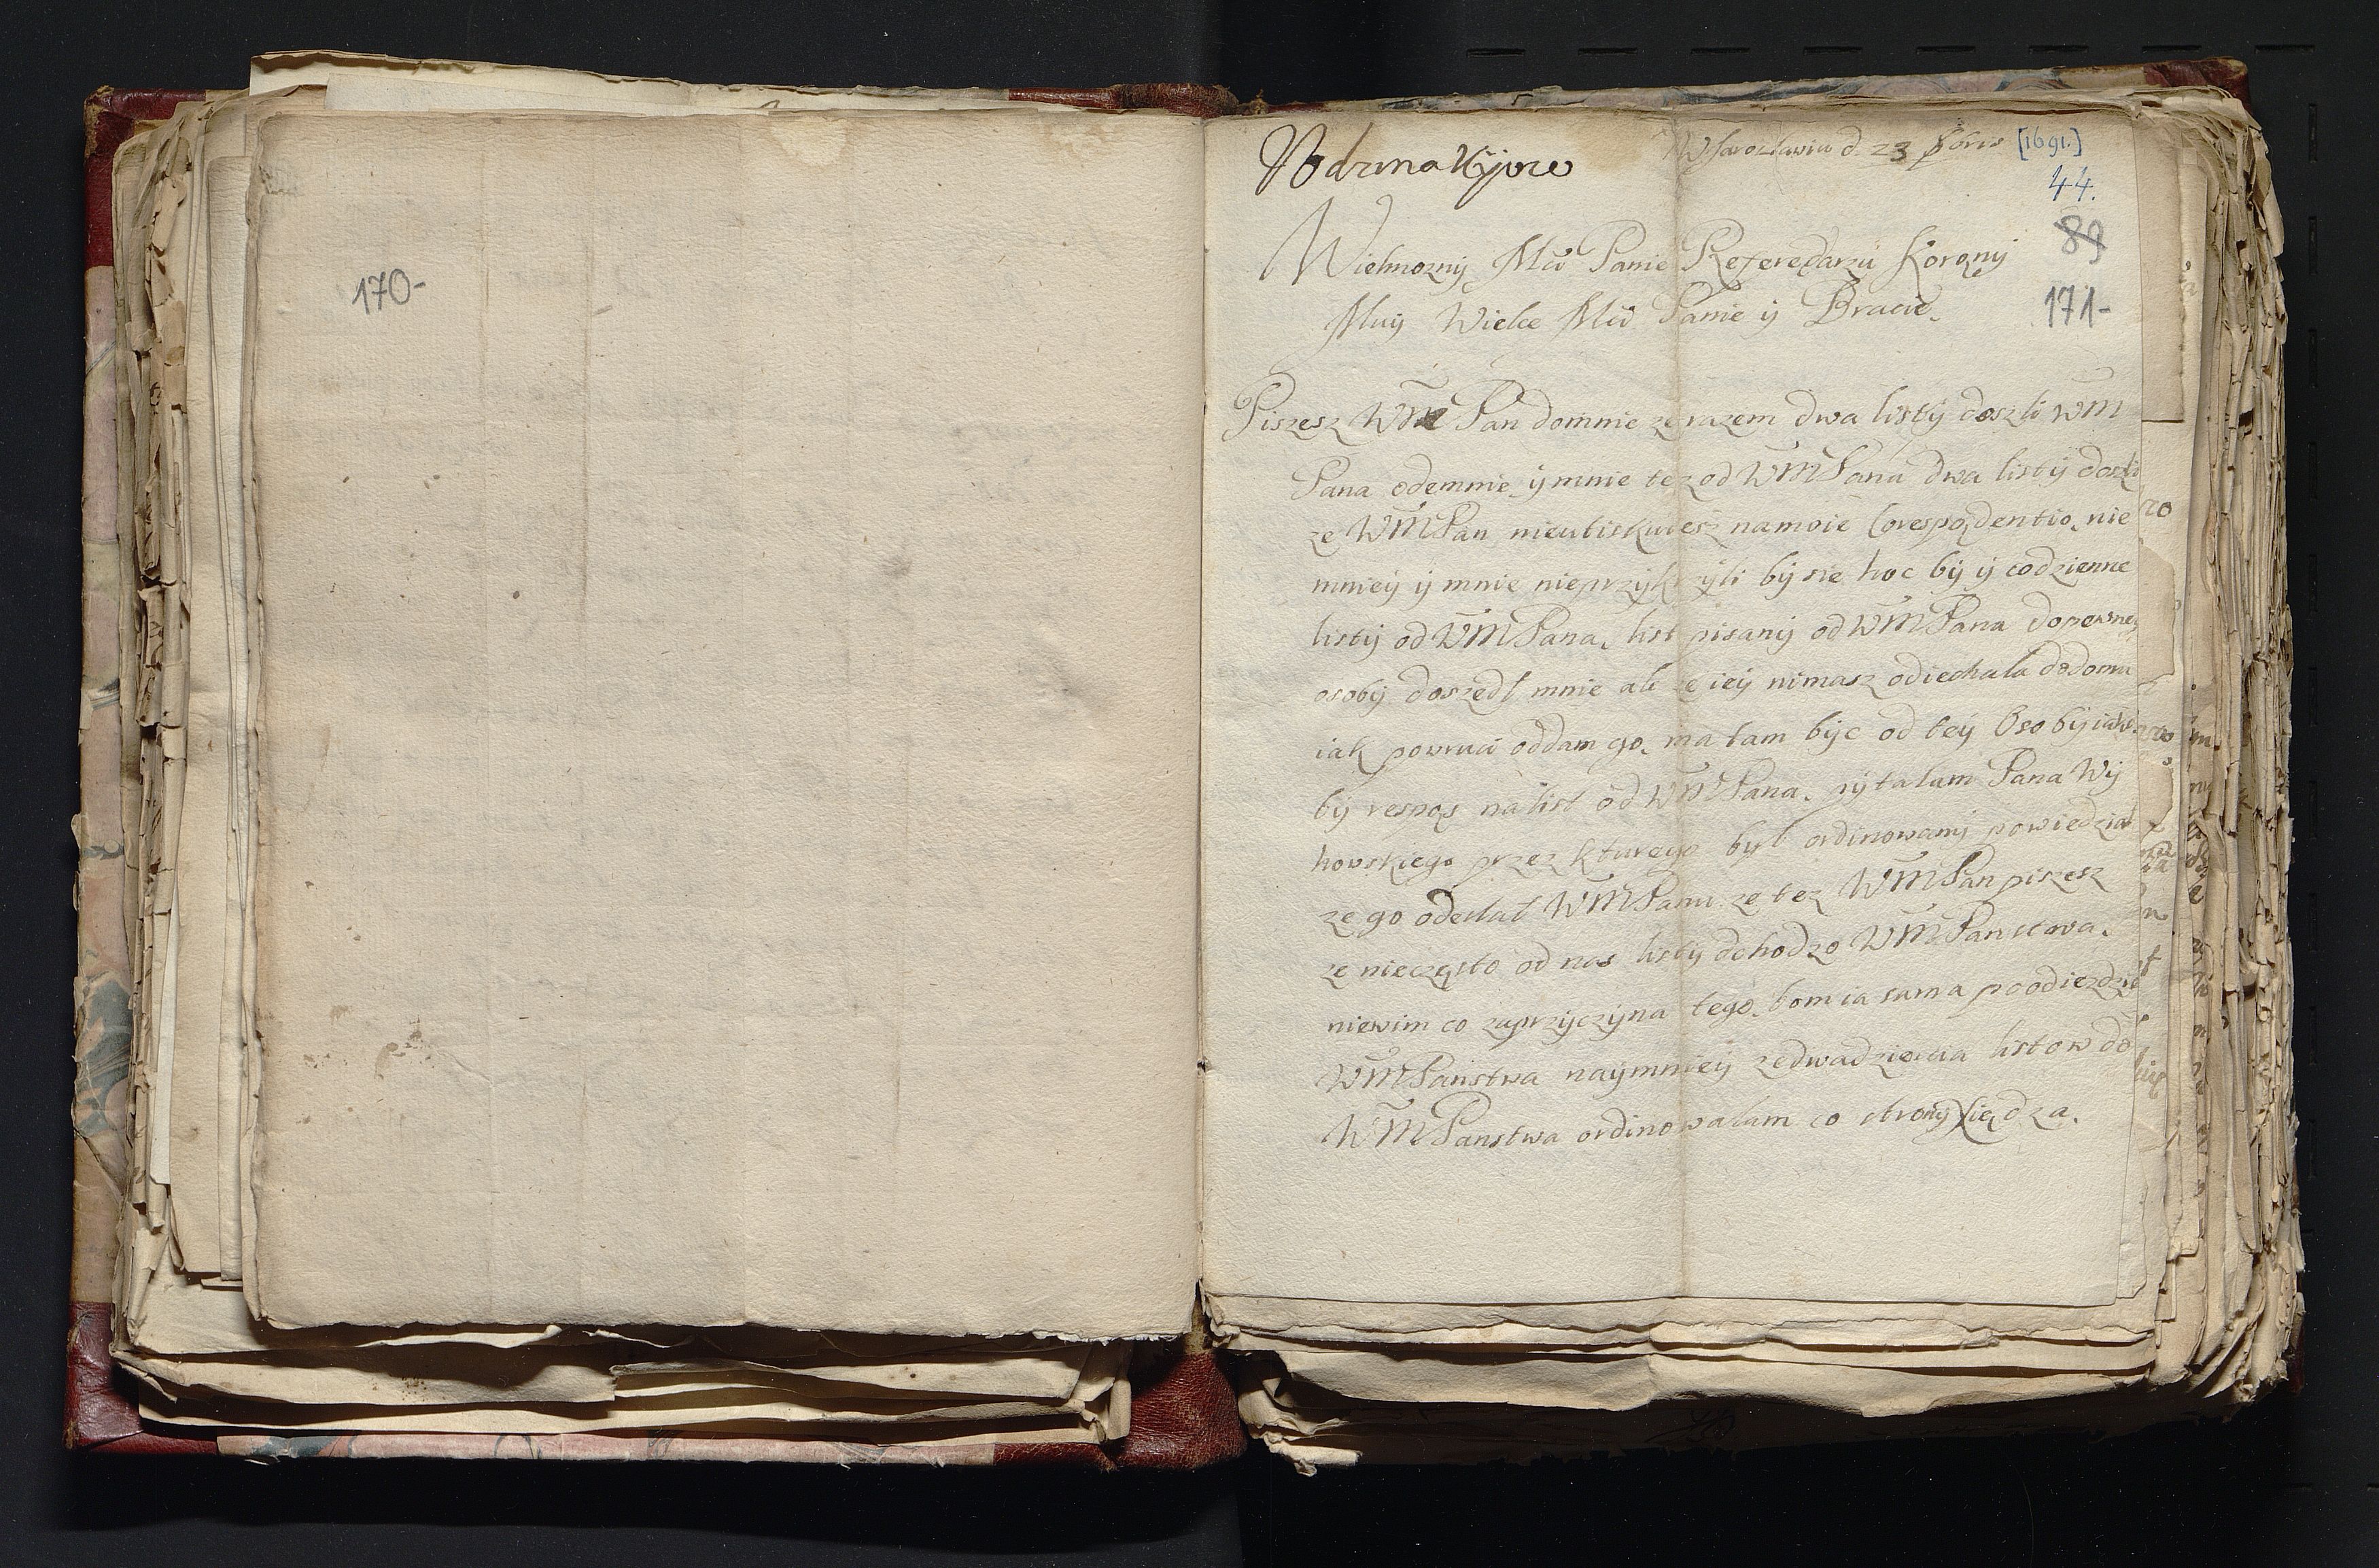 170-
W Jarosławiu d. 23
[1691.]
44.
89
171-
Wielmozny Mći Panie Referędarzu Korąny
Muy Wielce Mći Panie y Bracie.
Piszesz WM Pan domnie ze razem dwa listy doszli WM
Pana odemnie y mnie tez od WMPana dwa listy doszli
ze WMPan nieutiskuiesz namoie Corespądentio, nie
mniey y mnie nieprzykrzyli by sie hoc by y codzienne
listy od WMPana, list pisany od WMPana dopewney
osoby doszedl mnie ale ze iey nimasz odiechala dodomu
iak powruci oddam go, ma tam byc od tey Osoby
by respąs na list od WMPana, pytalam Pana Wy
hovskiego przez kturego byl ordinowany powiedzial
ze go odeslal WMPanu ze tez WMPan piszesz
ze nieczęsto od nas listy dohodzo WMPanstwa.
niewim co zaprzyczyna tego, bom ia sama poodiezdzie
WMPanstwa naymniey zedwadziescia listow do
WMPanstwa ordinowalam co strony Xiędza.